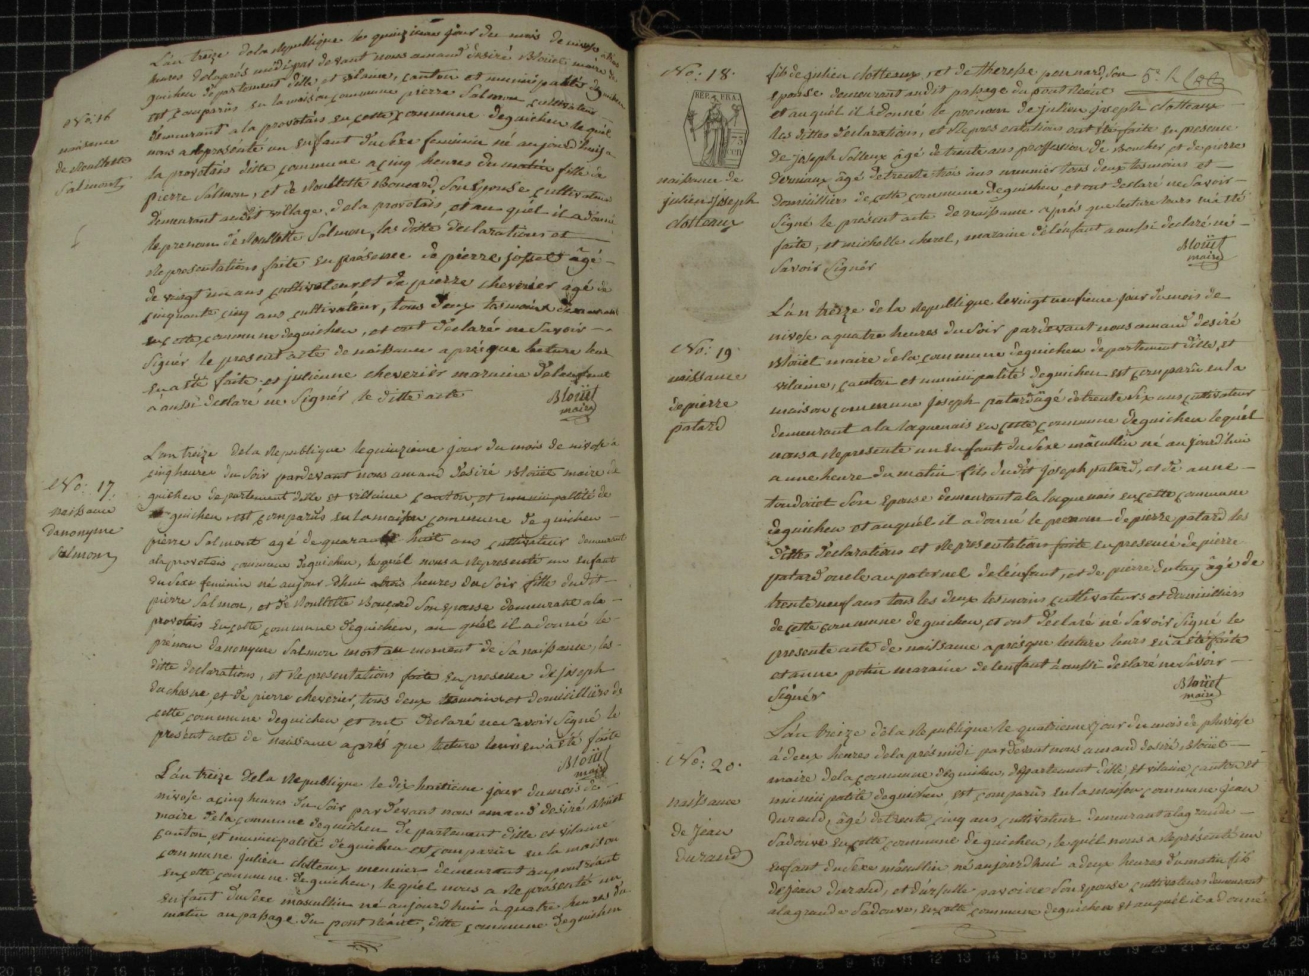 L'an treize de la republique le quinzieme jour du mois de nivose a
heures de laprés midi par devant nous amand desiré Bloüet maire de
guichen departement dille et vilaine, canton et municipalité deguichen
est comparüs en la maison commune pierre Salmon cultivateur
demeurant a la provotais en cette commune deguichen lequel
nous a representé un enfant du sexe feminin né aujourdhuij a
la provotais ditte commune a cinq heures du matin fille de
pierre Salmon, et de Noullette Bouçard, son Epouse cultivateur
demeurant audit village, de la provotais, et au quél il a donné
le prenom de Noullette Salmon, les ditte declarations et
Representations faite En presence de pierre josset âgé
de vingt un ans cultivateur et de pierre cheverier âgé de
cinquante cinq ans cultivatéur, tous deux tesmoins demeurant
en cette commune deguichen, et ont declaré ne Savoir
Signér le present acte de naissance aprés que lecture leur
en a eté faite et julienne cheveriér maraine de lenfant
a aussi declare ne Signér le ditte acte
Bloüet
maire
No: 16
naissance
de Noullette
Salmont
L'an treize de la Republique lequinzieme jour du mois de nivose a
cinq heures du Soir pardevant nous amand desiré Bloüet maire de
guichen departement dille et villaine canton, et municipallité de
guichen est comparüs en la maison commune de guichen
pierre Salmont agé de quarante huit ans cultivateur demeurant
alaprovotais commune deguichen, lequél nous a representé un enfant
du Sexe feminin né aujourdhui trois heures du Soir fille dudit
pierre Salmon, et de Noullette Bouçard Son Epouse demeurant a la
provotais En cette commune deguichen, au quél il a donné le
prénom danonyme Salmon mort au moment de Sa naissance, les
ditte declarations, et Representations faite En presence de joseph
duchesne, et de pierre cheverier, tous deux tesmoins et domicilliers de
cette commune deguichen et ont declaré ne Savoir Signé le
present acte de naissance aprés que lecture leurs en a eté faite
Bloüet
maire
No: 17.
naissance
danonyme
Salmon
L'an treize de la Republique le dix huitieme jour du mois de
nivose a cinq heures du Soir par devant nous amand desiré Bloüet
maire de la commune deguichen departement dille et vilaine
canton, et municipalité deguichen est comparüs en la maison
commune julien clotteaux meunier demeurant au pont
en cette commune deguichen, lequel nous a representé un
enfant du Sexe masculin né aujourdhui a quatre heures du
matin au passage du pont Réant, ditte commune deguichen
No: 18.
REP. FRA.
naissance de
julien joseph
clotteaux
fils de julien clotteaux, et de therese pennard, Son
epouse demeurant audit passage du pont Réant
et auquél il a donné le prenom de julien joseph clotteaux
les dittes declarations, et Representations ont eté faite en presence
de joseph Solleux âgé de trente ans proffession de Boucher et de pierre
dermaux âgé de trente trois ans meunier tous deux tesmoins et
domicilliers de cette commune deguichen, et ont declaré ne Savoir
Signé le présent acte de naissance aprés que lecture leurs en a eté
faite, et michelle chevel, maraine de lenfant a aussi declaré ne
Savoir Signér
Bloüet
maire
No: 19.
naissance
de pierre
patard
L'an treize de la Republique le vingt neufieme jour du mois de
nivose a quatre heures du Soir pardevant nous amand desiré
Bloüet maire de la commune deguichen departement dille, et
vilaine, canton et municipalité deguichen est comparüs en la
maison commune joseph patard âgé de trente six ans cultivateur
demeurant a la laquenais en cette commune deguichen lequél
nous a Representé un enfant du Sexe masculin né aujourdhui
a une heure du matin fils dudit joseph patard, et de anne
Son Epouse demeurant a la laquenais en cette commune
deguichen et auquél il a donné le prenom de pierre patard les
dittes declarations et Representations faite en presence de pierre
patard oncle au paternel de lenfant, et de pierre dutay âgé de
trente neuf ans tous les deux tesmoins cultivateurs et domicilliers
de cette commune deguichen, et ont declaré né Savoir Signé le
presente acte de naissance aprés que lecture leurs en a eté faite
et anne potin maraine de lenfant a aussi declaré ne Savoir
Signér
Bloüet
maire
No: 20.
naissance
de jean
durand
L'an treize de la Republique le quatrieme jour du mois de pluviose
a deux heures de laprés midi pardevant nous amand desiré Bloüet
maire de la commune deguichen, departement dille et vilaine canton et
municipalité deguichen, est comparüs en la maison commune jean
durand, âgé de trente cinq ans cultivateur demeurant alagrande
Sadouve en cette commune deguichen, lequél nous a representé un
enfant du Sexe masculin né aujourdhui a deux heures du matin fils
de jean durand, et Son Epouse cultivateurs demeurant
a la grande Sadouve, en cette commune deguichen et auquél il a donné